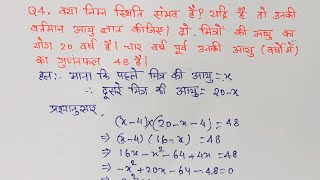 Q4. क्या निम्न स्थिति संभव है? यदि है तो उनकी
वर्तमान आयु ज्ञात कीजिए। दो मित्रों की आयु का
योग 20 वर्ष है। चार वर्ष पूर्व उनकी आयु (वर्षों में)
का गुणनफल 48 है।
हल:- माना कि पहले मित्र की आयु = x
∴ दूसरे मित्र की आयु = 20-x
प्रश्नानुसार,
(x-4)×(20-x-4) = 48
⇒ (x-4) (16-x) = 48
⇒ 16x - x² - 64 + 4x = 48
⇒ -x² + 20x - 64 - 48 = 0